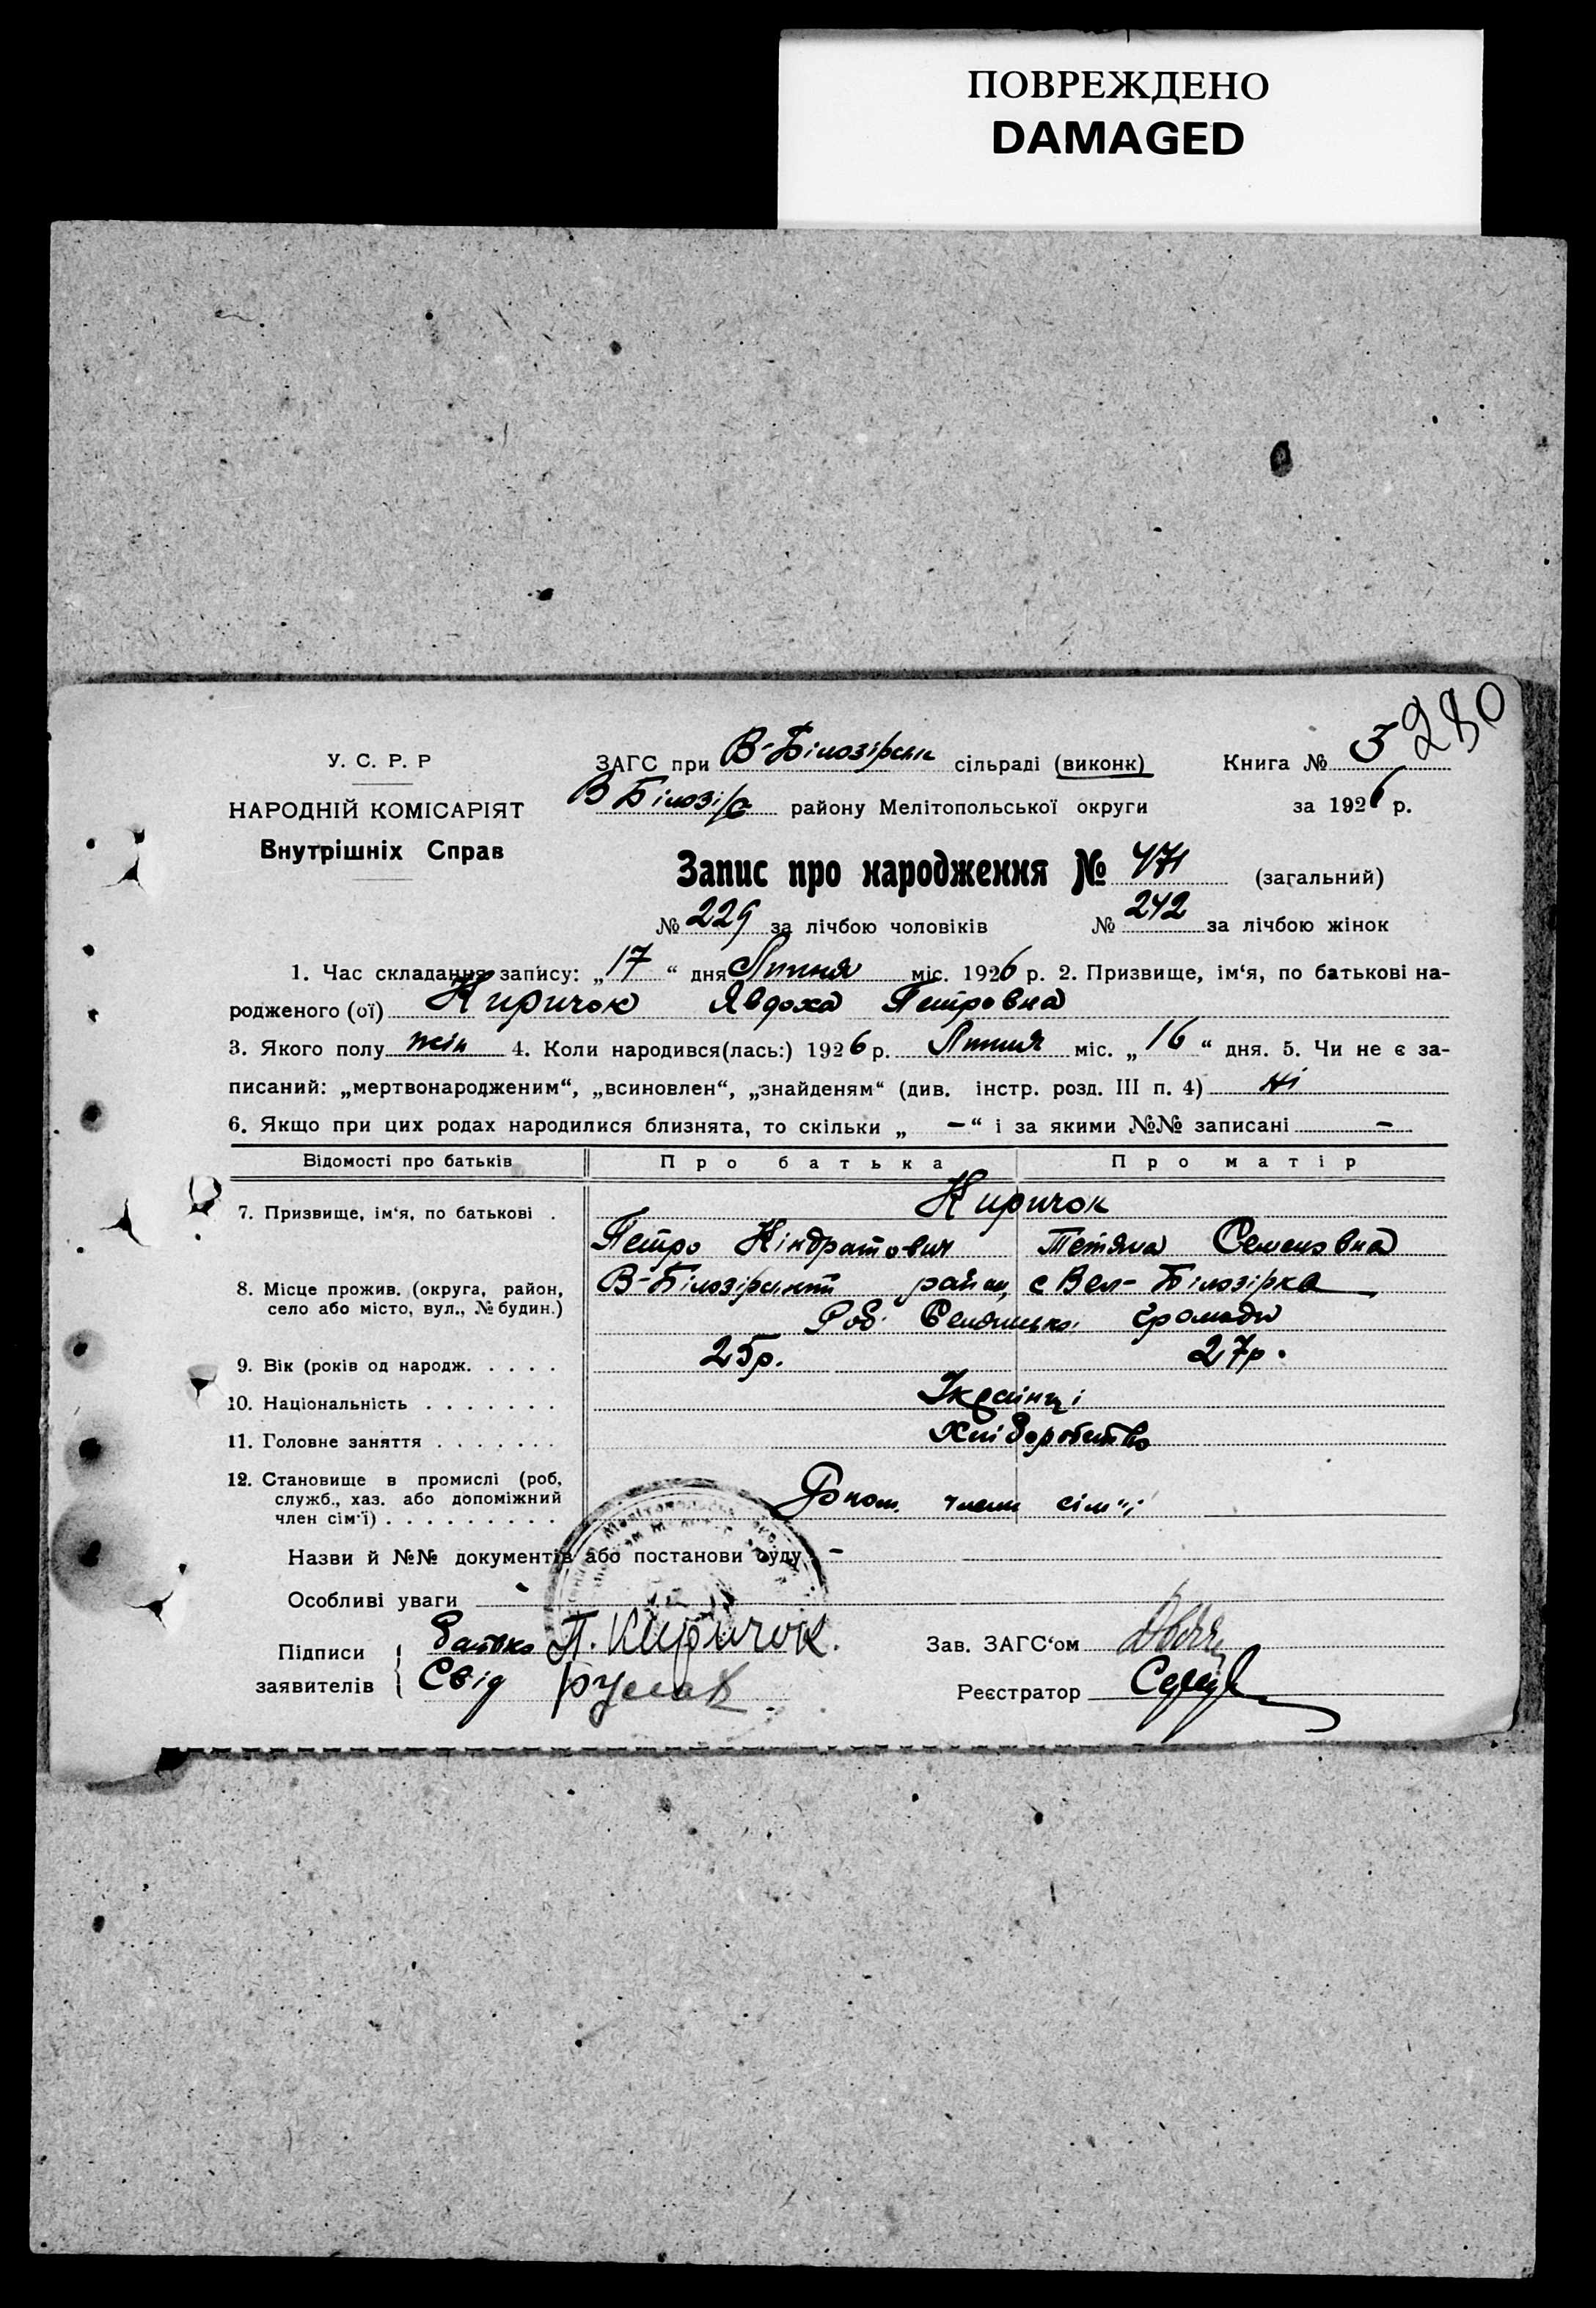 ПОВРЕЖДЕНО
DAMAGED
280
У. С. Р. Р
НАРОДНІЙ КОМІСАРІЯТ
Внутрішніх Справ
ЗАГС при В-Білозірськ сільраді (виконк) Книга № 3
В Білозір району Мелітопольської округи за 1926 р.
Запис про народження № 471 (загальний)
№ 229 за лічбою чоловіків № 242 за лічбою жінок
1. Час складання запису: „17“ дня Липня міс. 1926 р. 2. Призвище, ім‘я, по батькові на-
родженого (ої) Киричок Явдоха Петровна
3. Якого полу жін 4. Коли народився(лась:) 1926 р. Липня міс. „16“ дня. 5. Чи не є за-
писаний: „мертвонародженим“, „всиновлен“, „знайденям“ (див. інстр. розд. III п. 4) ні
6. Якщо при цих родах народилися близнята, то скільки „ —“ і за якими №№ записані —
Відомості про батьків Про батька Про матір
7. Призвище, ім‘я, по батькові . Киричок
Петро Кіндратович Тетяна Семеновна
8. Місце прожив. (округа, район, село або місто, вул., № будин.) В-Білозірський район, с Вел-Білозірка
громади
9. Вік (років од народж. . . . . 25р. 27р.
10. Національність . . . . . . . Українці
11. Головне заняття . . . . . . . Хліборобство
12. Становище в промислі (роб. служб., хаз. або допоміжний член сім‘ї) . . . . . . . . . члени сім'ї
Назви й №№ документів або постанови суду —
Особливі уваги
Підписи заявителів { батько П. Киричок.
Свід Русак
Зав. ЗАГС‘ом
Реєстратор